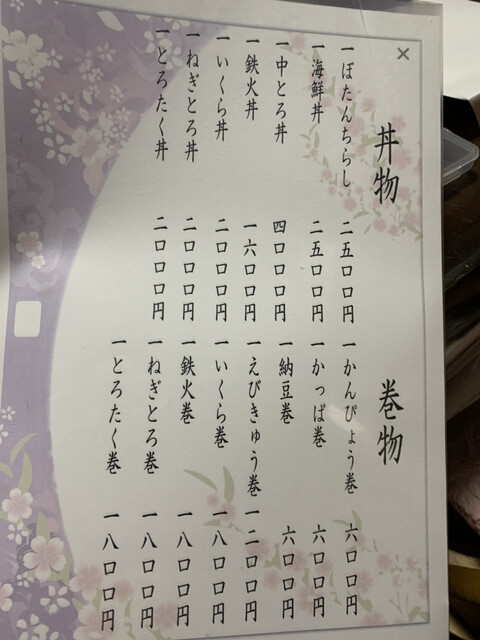 丼物
一ぼたんちらし 二五〇〇円
一海鮮丼 二五〇〇円
一中とろ丼 四〇〇〇円
一鉄火丼 一六〇〇円
一いくら丼 二〇〇〇円
一ねぎとろ丼 二〇〇〇円
一とろたく丼 二〇〇〇円
巻物
一かんぴょう巻 六〇〇円
一かっぱ巻 六〇〇円
一納豆巻 六〇〇円
一えびきゅう巻 一二〇〇円
一いくら巻 一八〇〇円
一鉄火巻 一八〇〇円
一ねぎとろ巻 一八〇〇円
一とろたく巻 一八〇〇円